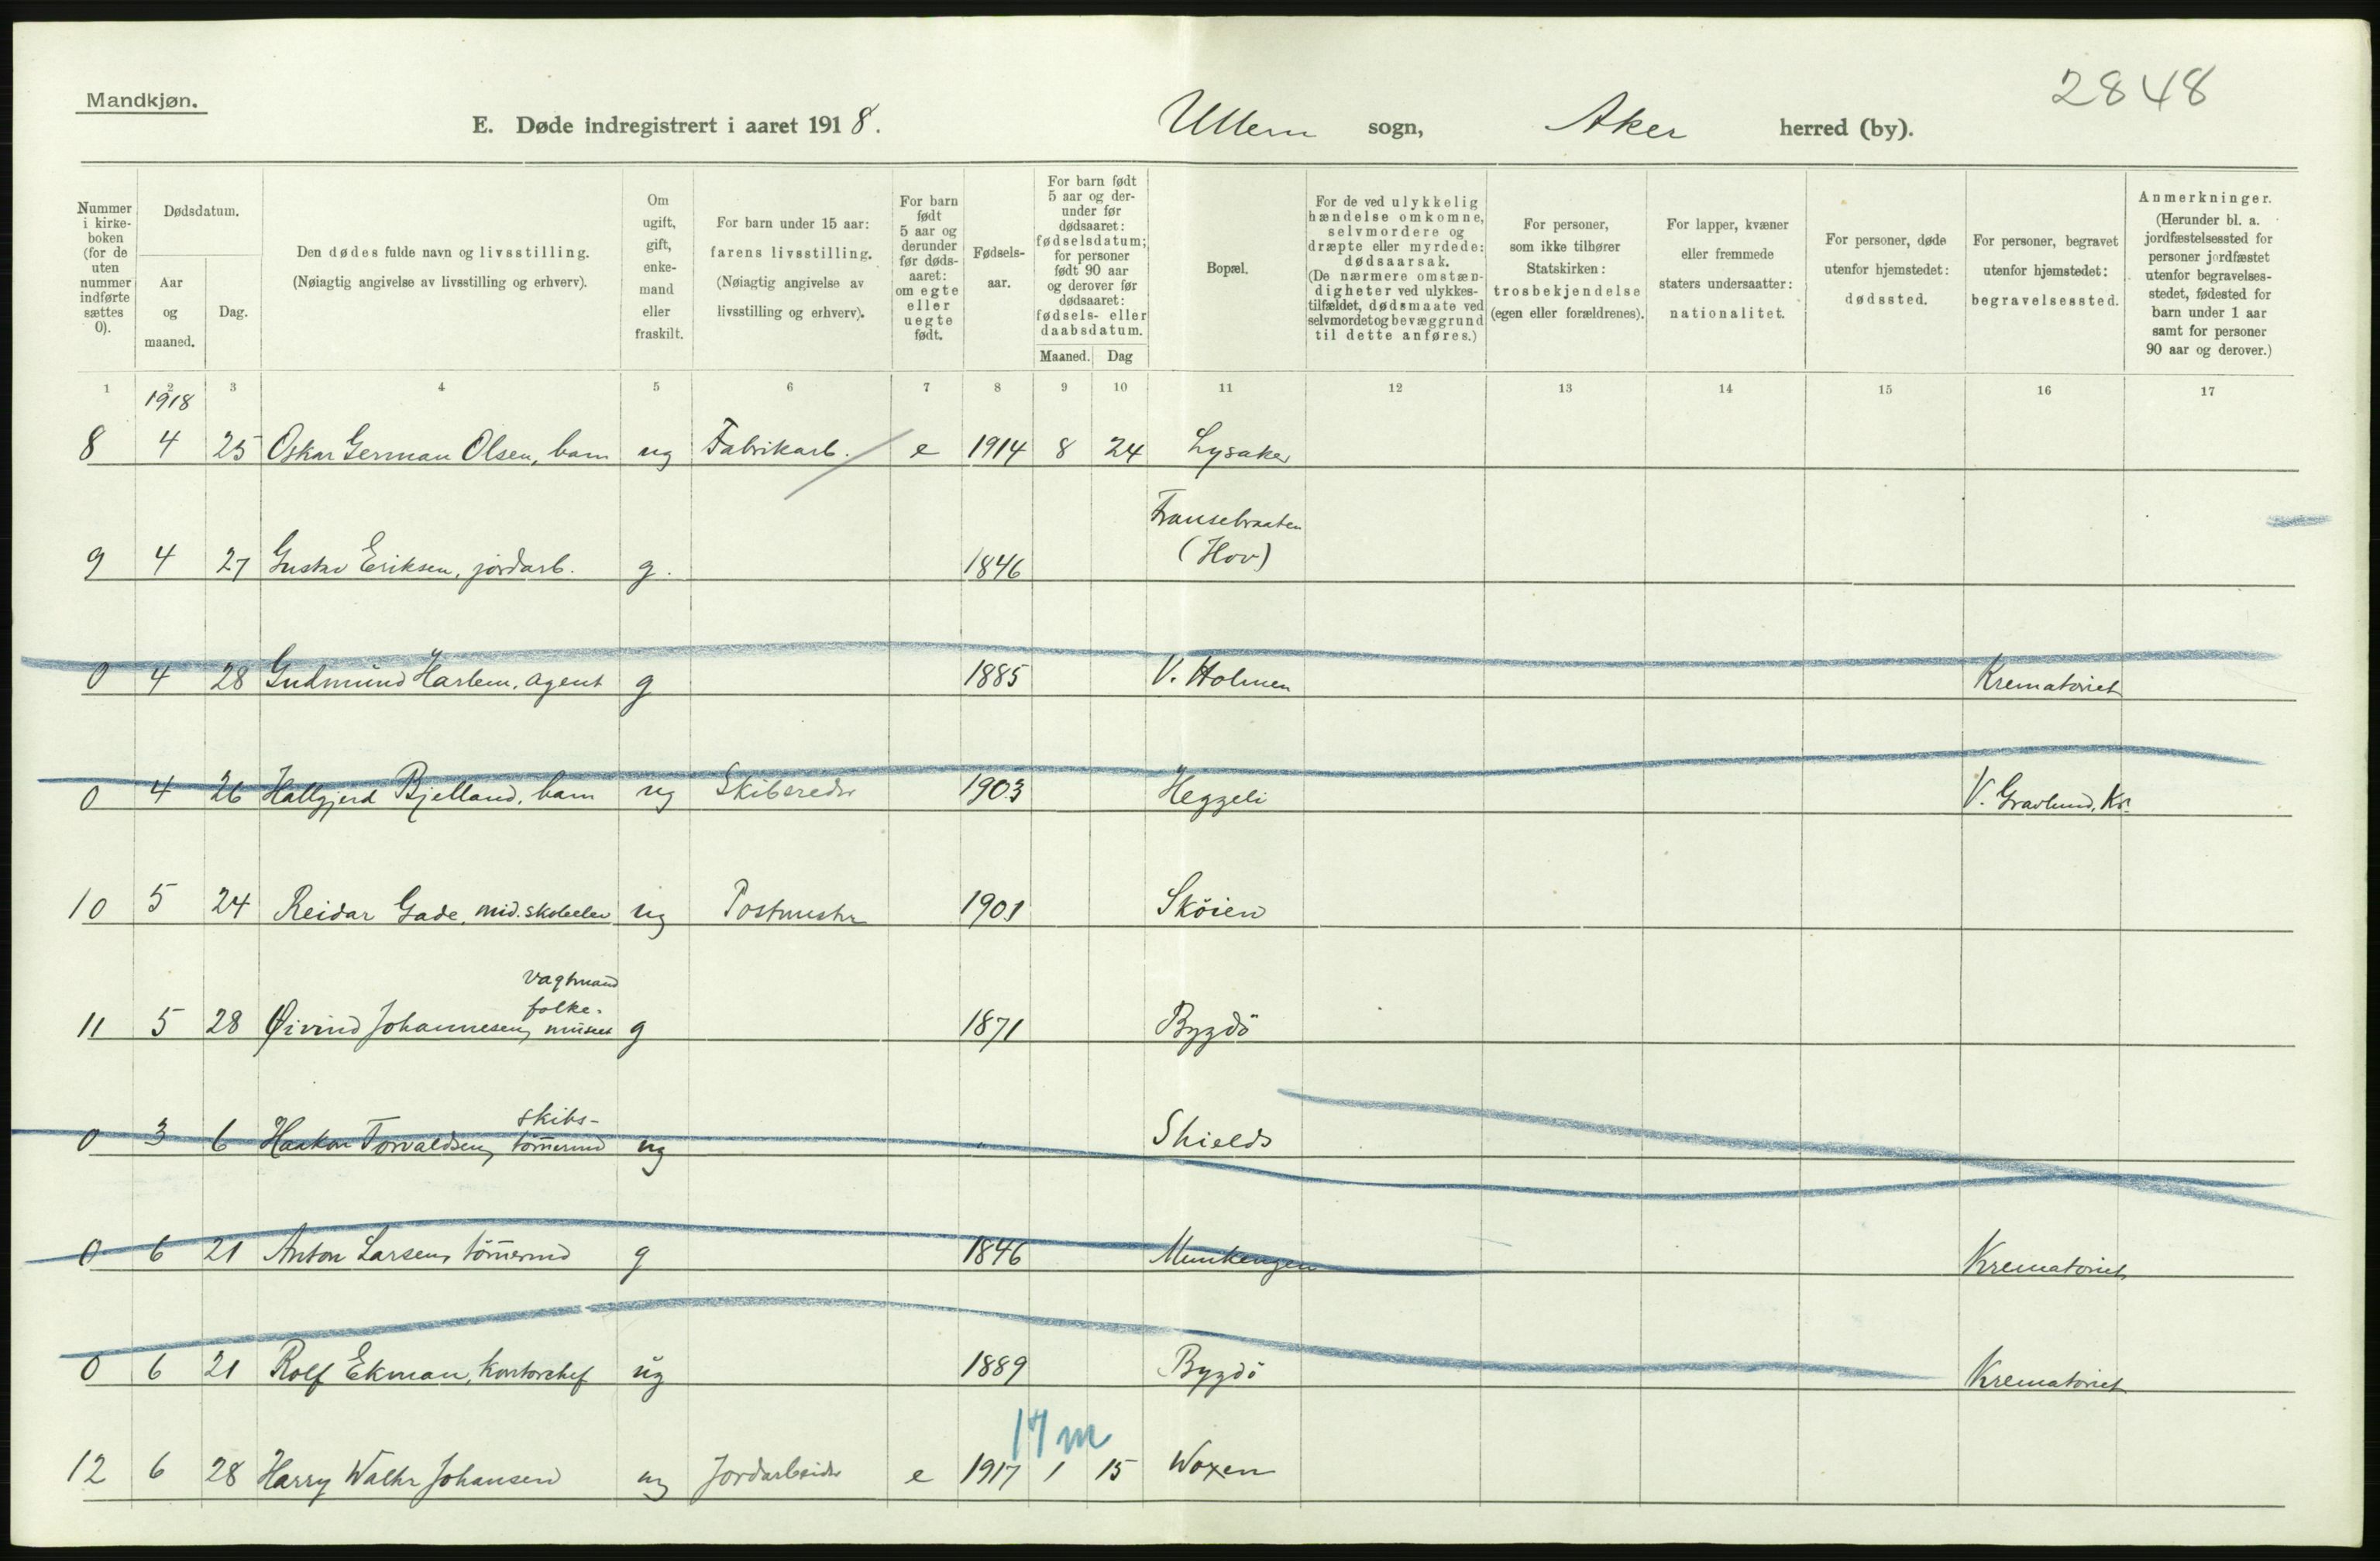 Mandkjøn.
2848
E. Døde indregistrert i aaret 1918. Ullern sogn, Aker herred (by).
Nummer i kirke-boken (for de uten nummer indførte sættes 0).
Dødsdatum.
Aar og maaned.
Dag.
Den dødes fulde navn og livsstilling. (Nøiagtig angivelse av livsstilling og erhverv).
Om ugift, gift, enke-mand eller fraskilt.
For barn under 15 aar: farens livsstilling. (Nøiagtig angivelse av livsstilling og erhverv).
For barn født 5 aar og derunder før døds-aaret: om egte eller uegte født.
Fødsels-aar.
For barn født 5 aar og der-under før dødsaaret: fødselsdatum; for personer født 90 aar og derover før dødsaaret: fødsels- eller daabsdatum.
Maaned. Dag
Bopæl.
For de ved ulykkelig hændelse omkomne, selvmordere og dræpte eller myrdede: dødsaarsak. (De nærmere omstæn-digheter ved ulykkes-tilfældet, dødsmaate ved selvmordet og bevæggrund til dette anføres.)
For personer, som ikke tilhører Statskirken: trosbekjendelse (egen eller forældrenes).
For lapper, kvæner eller fremmede staters undersaatter: nationalitet.
For personer, døde utenfor hjemstedet: dødssted.
For personer, begravet utenfor hjemstedet: begravelsessted.
Anmerkninger. (Herunder bl. a. jordfæstelsessted for personer jordfæstet utenfor begravelses-stedet, fødested for barn under 1 aar samt for personer 90 aar og derover.)
1 2 3 4 5 6 7 8 9 10 11 12 13 14 15 16 17
1918
8 4 25 Oskar German Olsen, barn ug Fabrikarb. e 1914 8 24 Lysaker
9 4 27 Gustav Eriksen, jordarb. g. 1846 Fransebraaten (Hov)
0 4 28 Gudmund Harlem, agent g 1885 V. Holmen Krematoriet
0 4 26 Hallgjerd Bjelland, barn ug Skibsreder 1903 Heggeli V. Gravlund, Kr.
10 5 24 Reidar Gade, mid.skoleelev ug Postmester 1901 Sköien
11 5 28 Øivind Johannesen, vagtmand folke-museet g 1871 Bygdö
0 3 6 Haakon Torvaldsen, skibs-tömermd ug " Shields
0 6 21 Anton Larsen, tömermd g 1846 Munkengen Krematoriet
0 6 21 Rolf Ekman, kontorchef ug 1889 Bygdö Krematoriet
17 m
12 6 28 Harry Walter Johansen ug Jordarbeider e 1917 1 15 Woxen